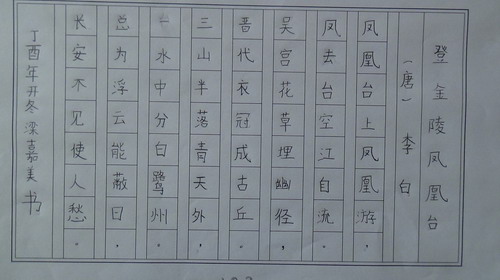 登金陵凤凰台
（唐）李白
凤凰台上凤凰游，
凤去台空江自流。
吴宫花草埋幽径，
晋代衣冠成古丘。
三山半落青天外，
一水中分白鹭州。
总为浮云能蔽日，
长安不见使人愁。
丁酉年开冬梁嘉美书